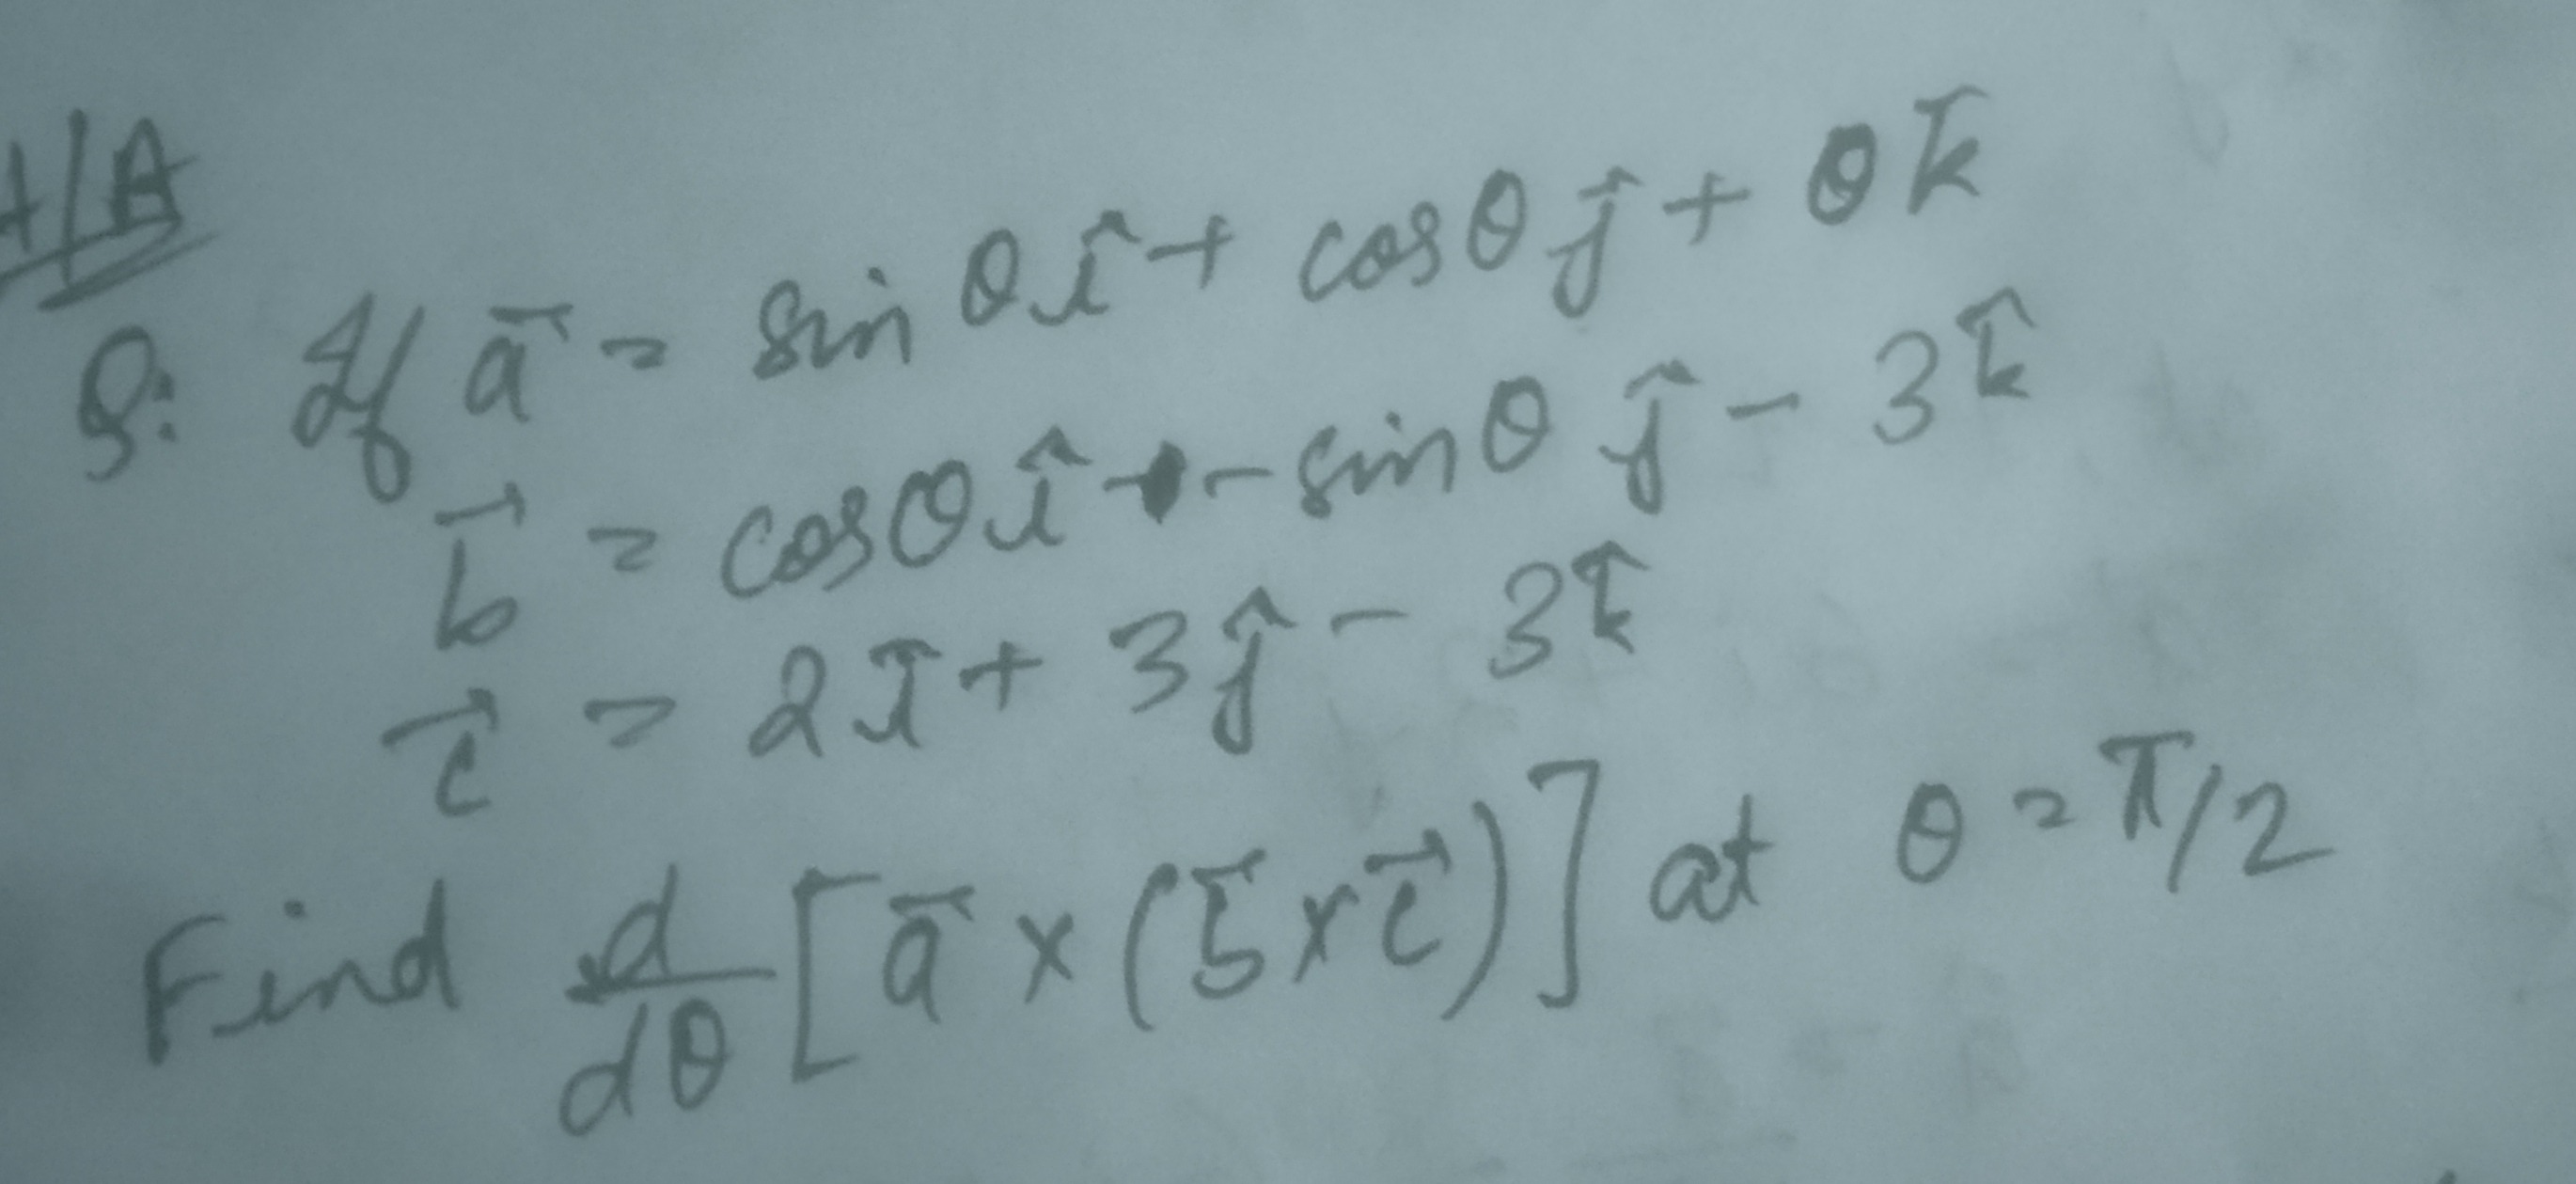 H/A
Q: If a⃗ = sin θ î + cos θ ĵ + θ k̂
b⃗ = cos θ î - sin θ ĵ - 3 k̂
c⃗ = 2 î + 3 ĵ - 3 k̂
Find d/dθ [a⃗ × (b⃗ × c⃗)] at θ = π/2